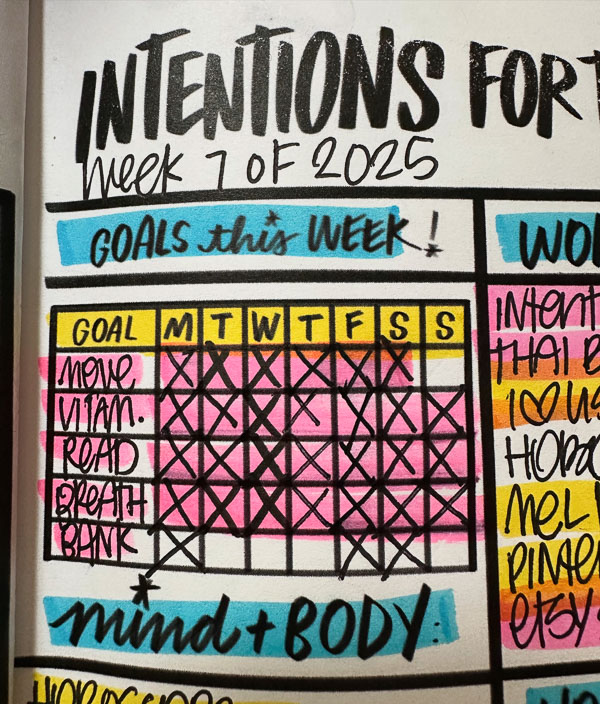 INTENTIONS FOR
Week 7 OF 2025
GOALS this WEEK!
GOAL M T W T F S S
MOVE X X X X X X
VITAM. X X X X X X X
READ X X X X X X X
BREATH X X X X X X X
BANK X X X
mind + BODY:
INTENT
THAI B
I ♡ US
MEL
PINTE
ETSY